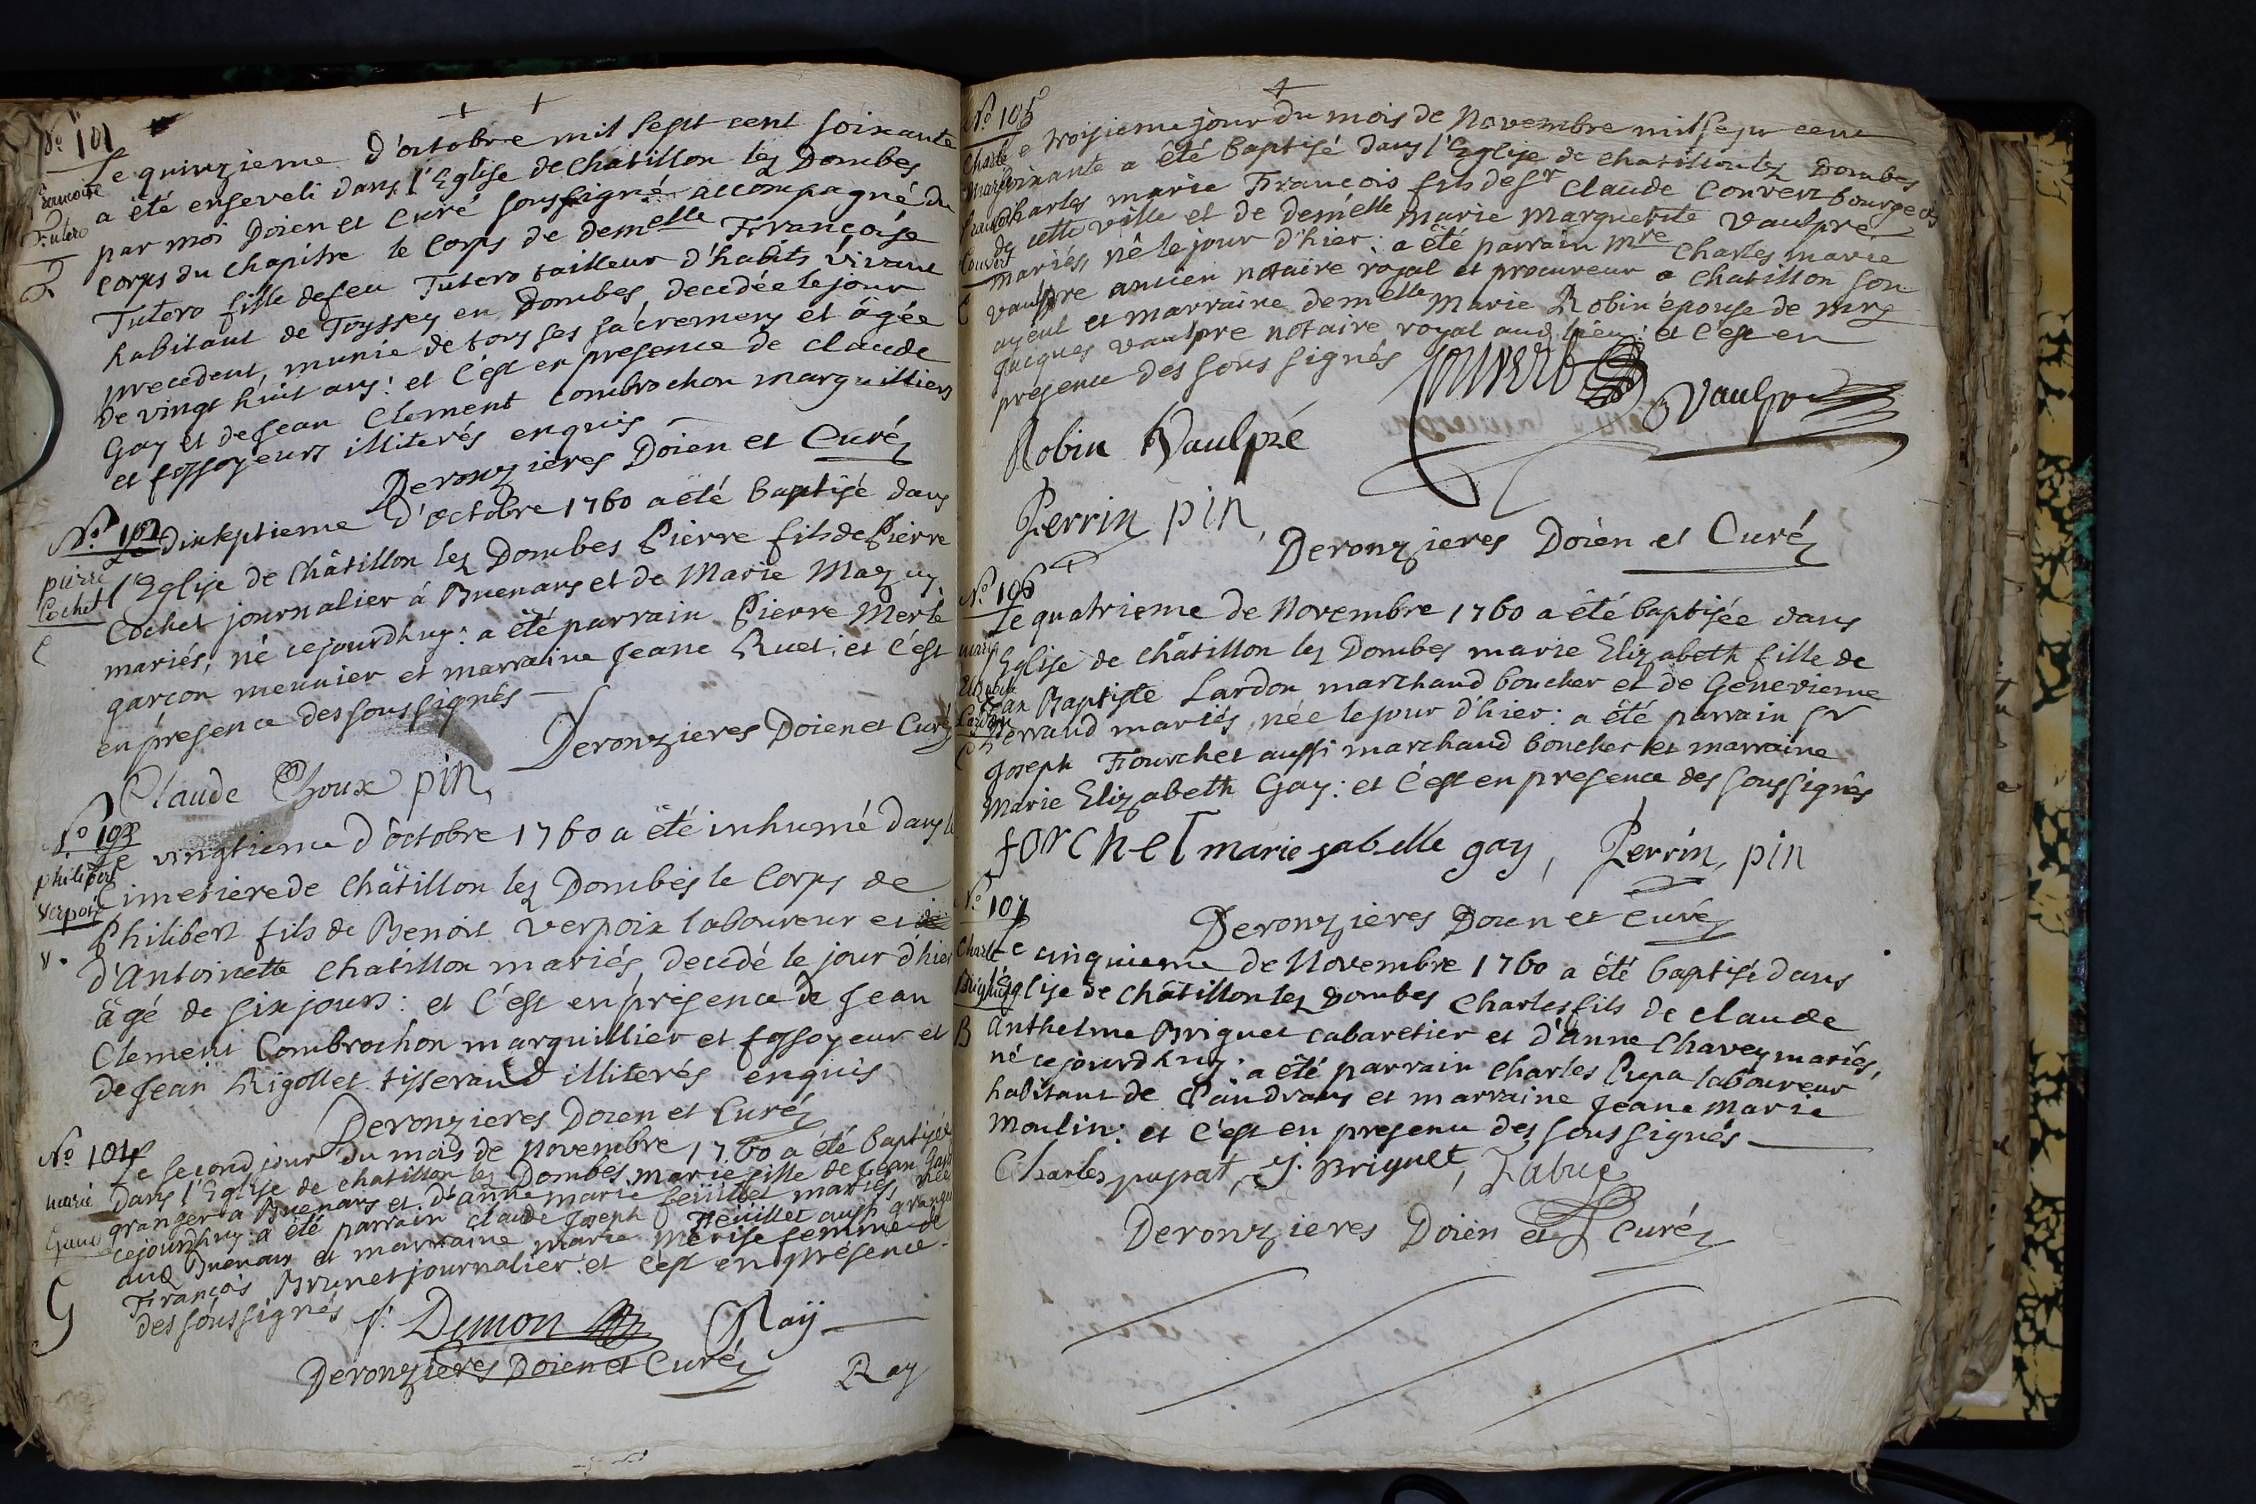 No 101
Le quinzieme d'octobre mil sept cent soixante
Francoise
Tutero
a été enseveli dans l'Eglise de Chatillon lez Dombes
par moi Doien et Curé soussigné accompagné du
corps du chapitre le corps de demelle Françoise
Tutero fille de feu Tutero tailleur d'habits vivant
habitant de Toyssey en Dombes, decedée le jour
precedent, munie de tous ses sacremens et âgée
de vingt huit ans: et c'est en presence de claude
Gay et de Jean Clement Combrochon marguilliers
et fossoyeurs illiterés enquis
Deronzieres Doien et Curé
No 102
Le dixseptieme d'octobre 1760 a été baptisé dans
pierre
Cochet
l'Eglise de Châtillon lez Dombes Pierre fils de Pierre
Cochet journalier à Buenans et de Marie Mazuy
mariés, né cejourdhuy: a été parrain Pierre Merle
garcon meunier et marraine Jeane Ruet: et c'est
en presence des soussignés
Deronzieres Doien et Curé
Claude Choux pin
No 103
Le vingtieme d'octobre 1760 a été inhumé dans le
philibert
verpoix
Cimetiere de Châtillon lez Dombes le Corps de
Philibert fils de Benoit verpoix laboureur et
v.
d'Antoinette chatillon mariés, decedé le jour d'hier
âgé de six jours: et c'est en presence de Jean
Clement Combrochon marguillier et fossoyeur et
de Jean Rigollet tisserand illiterés enquis
Deronzieres Doien et Curé
No 104
Le second jour du mois de Novembre 1760 a été baptisée
marie
dans l'Eglise de chatillon lez Dombes marie fille de Jean
granger a Buenans et d'anne marie feüillet mariés, née
cejourdhuy: a été parrain claude Joseph Feüillet aussi granger
aud. Buenans et marraine marie Merise femme de
François Brunet journalier: et c'est en presence
G
des soussignés
Dumon Ray
Deronzieres Doien et Curé Ray
No 105
Le troisieme jour du mois de Novembre mil sept cent
soixante a été baptisé dans l'Eglise de chatillon lez Dombes
charles marie François fils de Sr Claude Convert bourgeois
de cette ville et de demelle marie marguerite Vaulpré
mariés, né le jour d'hier: a été parrain mre Charles marie
vaulpre ancien notaire royal et procureur a chatillon son
ayeul et marraine demelle Marie Robin épouse de mre
Jacques vaulpre notaire royal aud. lieu: et c'est en
présence des sous signés
Convert Vaulpré
Robin Vaulpré
Perrin pin,
Deronzieres Doien et Curé
No 106
Le quatrieme de Novembre 1760 a été baptisée dans
l'Eglise de châtillon lez Dombes marie Elizabeth fille de
Jean Baptiste Lardon marchand boucher et de Genevieme
Perraud mariés, née le jour d'hier: a été parrain Sr
Joseph Fourchet aussi marchand boucher et marraine
Marie Elizabeth Gay: et c'est en presence des soussignés
forchet marie jsabelle gay, Perrin, pin
Deronzieres Doien et Curé
No 107
Le cinquieme de Novembre 1760 a été baptisé dans
l'Eglise de châtillon lez Dombes Charles fils de claude
B
Anthelme Briguet cabaretier et d'Anne Chavey mariés,
né cejourdhuy: a été parrain charles Pupa laboureur
habitant de Condrans et marraine Jeane Marie
Moulin: et c'est en presence des sous signés
Charles pupat, J. Briguet, Labue
Deronzieres Doien et Curé